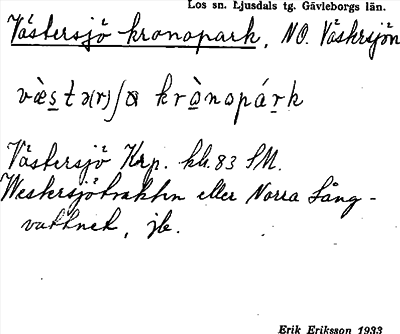 Los sn. Ljusdals tg. Gävleborgs län.
Västersjö kronopark, NO. Västersjön
væ̀s̱tə(r)ʃɷ krò̱nopáṟk
Västersjö Krp. kbl. 83 SM.
Westersjötrakten eller Norra Lång-
vattnet, jb.
Erik Eriksson 1933